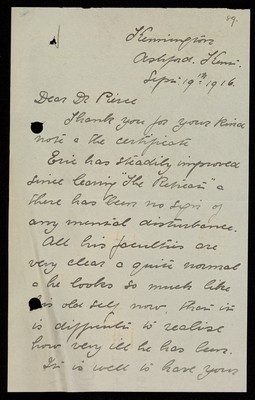 29.
Kennington
Ashford. Kent.
Sept: 19th 1916.
Dear Dr Pierce
Thank you for your kind
note & the certificate
Eric has steadily improved
since leaving "The Retreat" &
there has been no sign of
any mental disturbance.
All his faculties are
very clear & quite normal
& he looks so much like
his old self now. that it
is difficult to realise
how very ill he has been.
It is well to have your